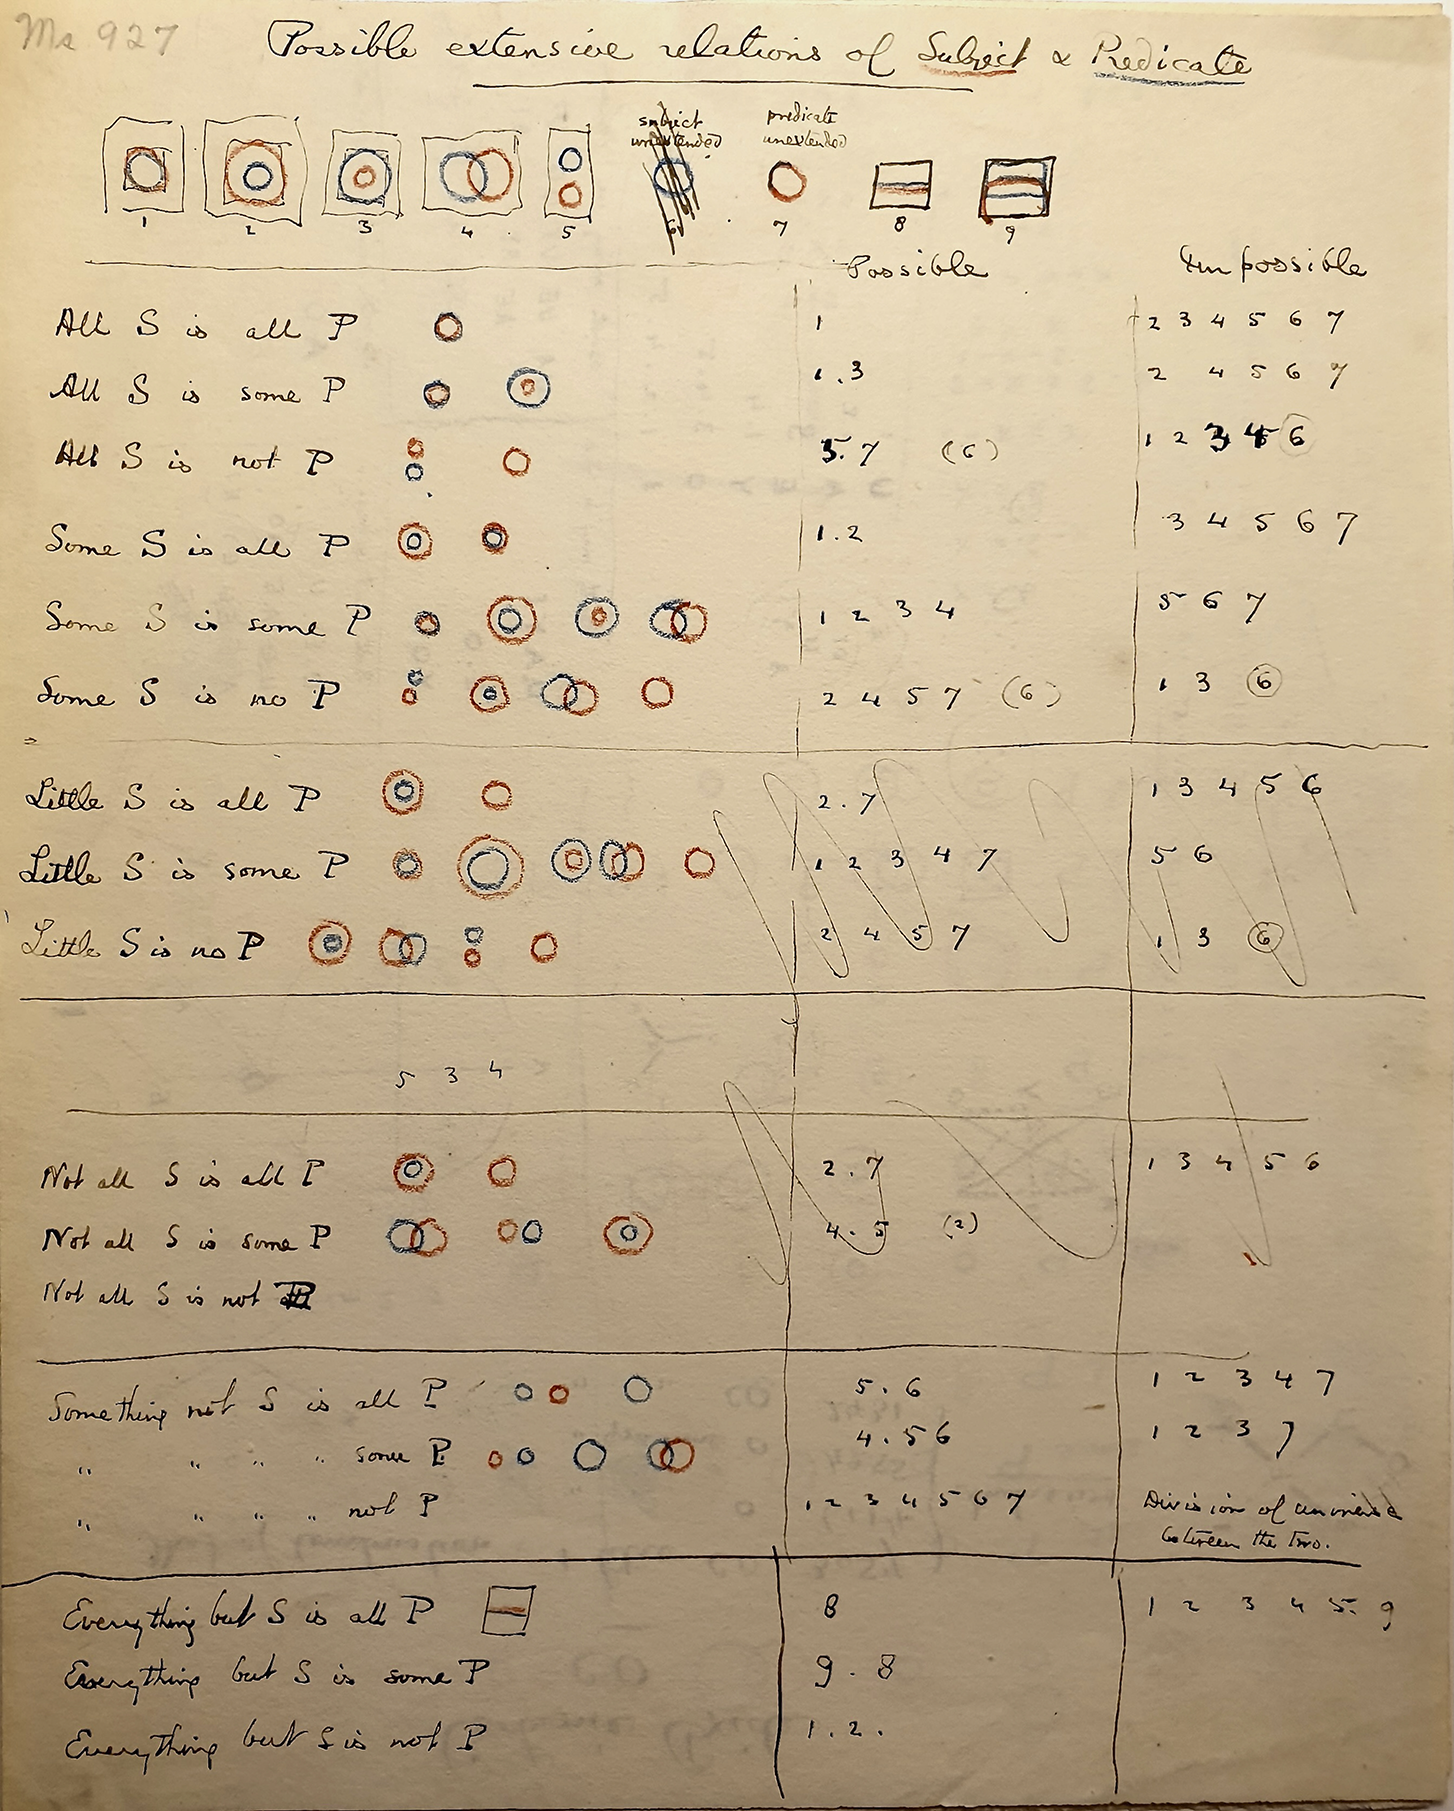 Ms 927
Possible extensive relations of Subject & Predicate
subject predicate
unextended unextended
1 2 3 4 5 6 7 8 9
Possible Impossible
All S is all P 1 2 3 4 5 6 7
All S is some P 1.3 2 4 5 6 7
All S is not P 5.7 (6) 1 2 3 4 6
Some S is all P 1.2 3 4 5 6 7
Some S is some P 1 2 3 4 5 6 7
Some S is no P 2 4 5 7 (6) 1 3 6
Little S is all P 2.7 1 3 4 5 6
Little S is some P 1 2 3 4 7 5 6
Little S is no P 2 4 5 7 1 3 6
5 3 4
Not all S is all P 2.7 1 3 4 5 6
Not all S is some P 4.5 (2)
Not all S is not P
Something not S is all P 5.6 1 2 3 4 7
" " " " some P 4.56 1 2 3 7
" " " " not P 1 2 3 4 5 6 7 Division of universe
between the two.
Everything but S is all P 8 1 2 3 4 5. 9
Everything but S is some P 9.8
Everything but S is not P 1.2.